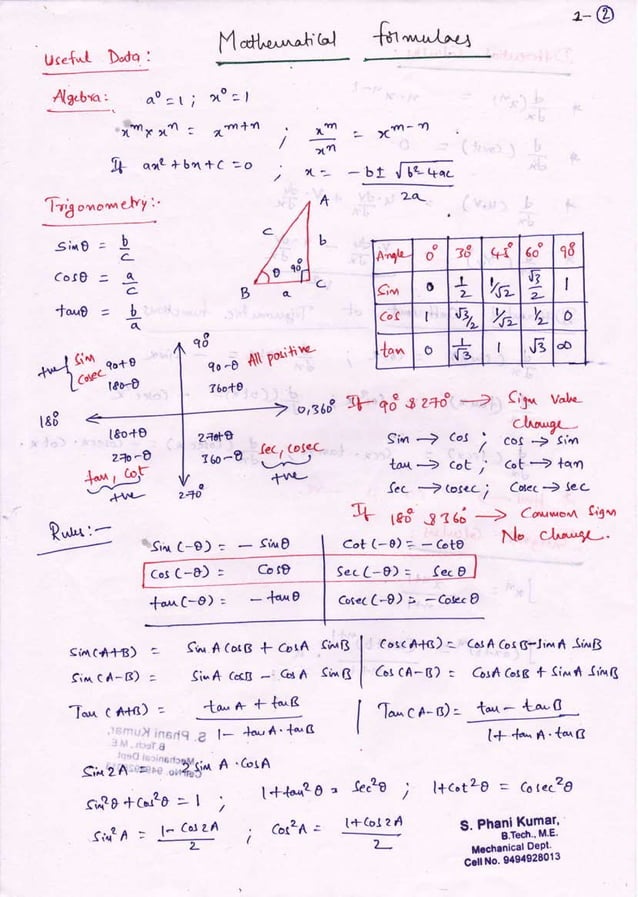 2-②
Mathematical formulaes
Useful Data:
Algebra: a⁰ = 1 ; x⁰ = 1
xᵐ × xⁿ = xᵐ⁺ⁿ ; xᵐ/xⁿ = xᵐ⁻ⁿ
If ax² + bx + c = 0 ; x = (-b ± √(b² - 4ac))/2a
Trigonometry:-
Sinθ = b/c
Cosθ = a/c
tanθ = b/a
A
c b
θ 90°
B a C
Angle 0° 30° 45° 60° 90
Sin 0 1/2 1/√2 √3/2 1
Cos 1 √3/2 1/√2 1/2 0
tan 0 1/√3 1 √3 ∞
90°
+ve { Sin Cosec 90+θ
180-θ
90-θ All positive
360+θ
180° 0,360°
180+θ
270-θ
tan, Cot
+ve
270+θ
360-θ
Sec, Cosec
+ve
270°
If 90° & 270° → Sign Value Change
Sin → Cos ; Cos → Sin
tan → Cot ; Cot → tan
Sec → Cosec ; Cosec → Sec
If 180° & 360° → Common Sign
No Change.
Rules:-
Sin(-θ) = - Sinθ Cot(-θ) = - Cotθ
Cos(-θ) = Cosθ Sec(-θ) = Secθ
tan(-θ) = - tanθ Cosec(-θ) = - Cosecθ
Sin(A+B) = Sin A CosB + CosA SinB Cos(A+B) = CosA CosB - SinA SinB
Sin(A-B) = SinA CosB - CosA SinB Cos(A-B) = CosA CosB + SinA SinB
Tan(A+B) = (tanA + tanB)/(1 - tanA·tanB) Tan(A-B) = (tan - tanB)/(1 + tanA·tanB)
Sin 2A = 2 Sin A · CosA
Sin²θ + Cos²θ = 1 ; 1 + tan²θ = Sec²θ ; 1 + Cot²θ = Cosec²θ
Sin²A = (1 - Cos2A)/2 ; Cos²A = (1 + Cos2A)/2
S. Phani Kumar,
B.Tech., M.E.
Mechanical Dept.
Cell No. 9494928013